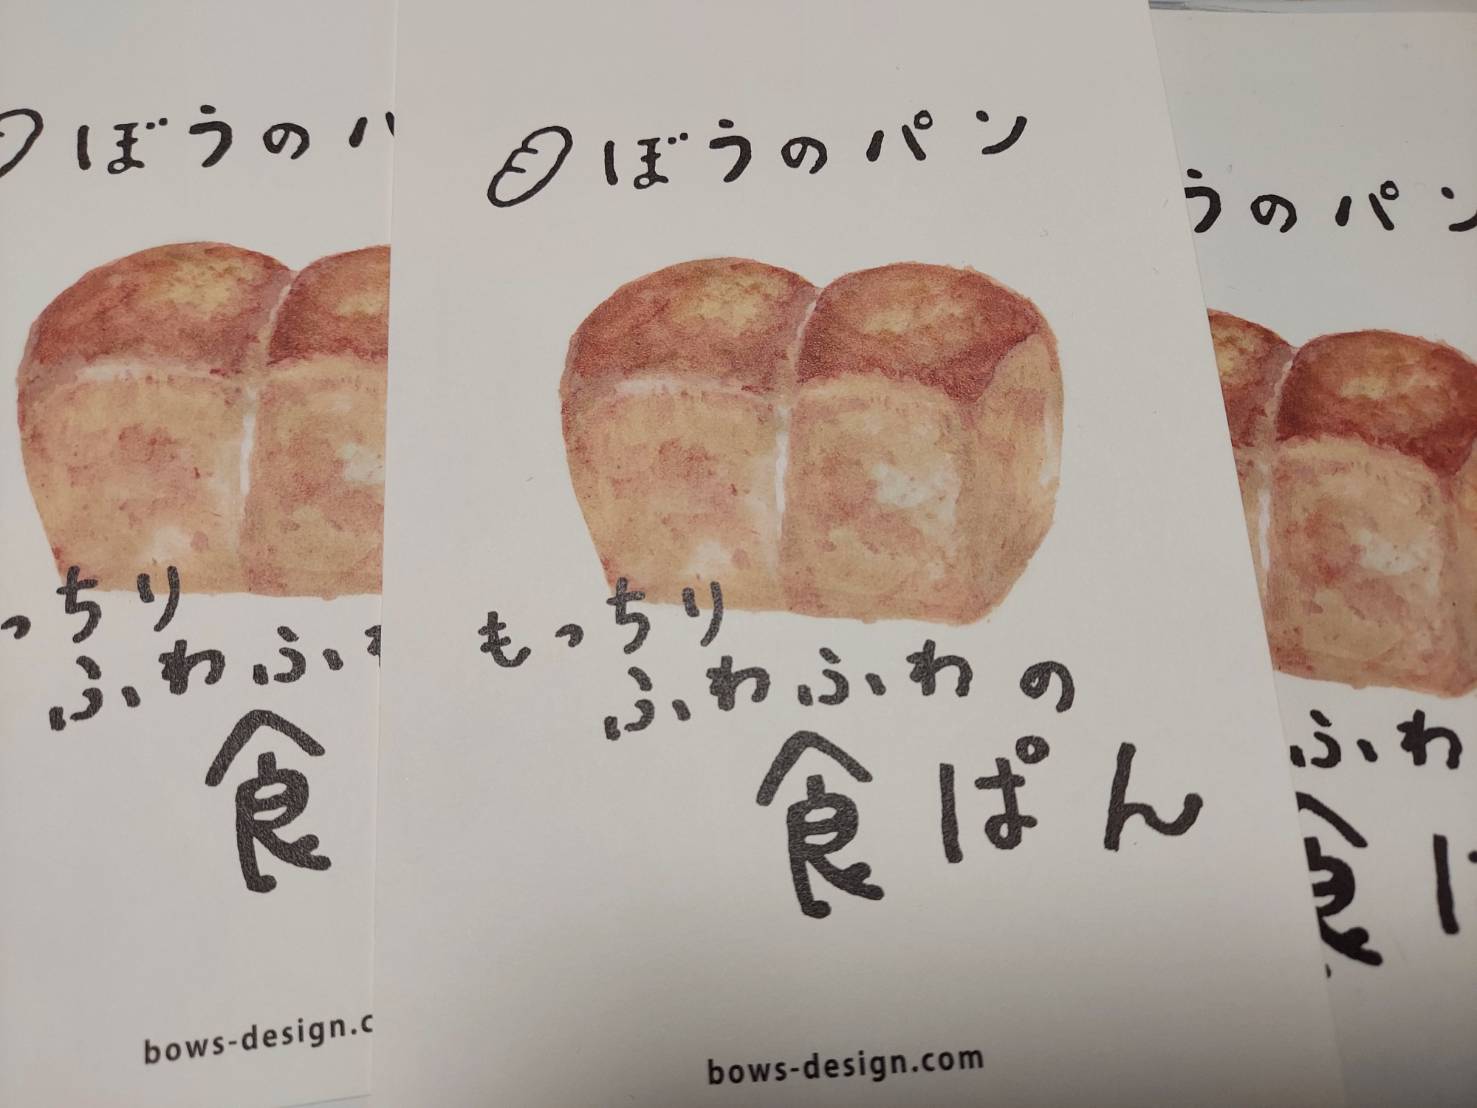 ぼうのパ
っちり
ふわふわ
食
bows-design.c
ぼうのパン
もっちり
ふわふわの
食ぱん
bows-design.com
うのパン
ふわ
食ぱ